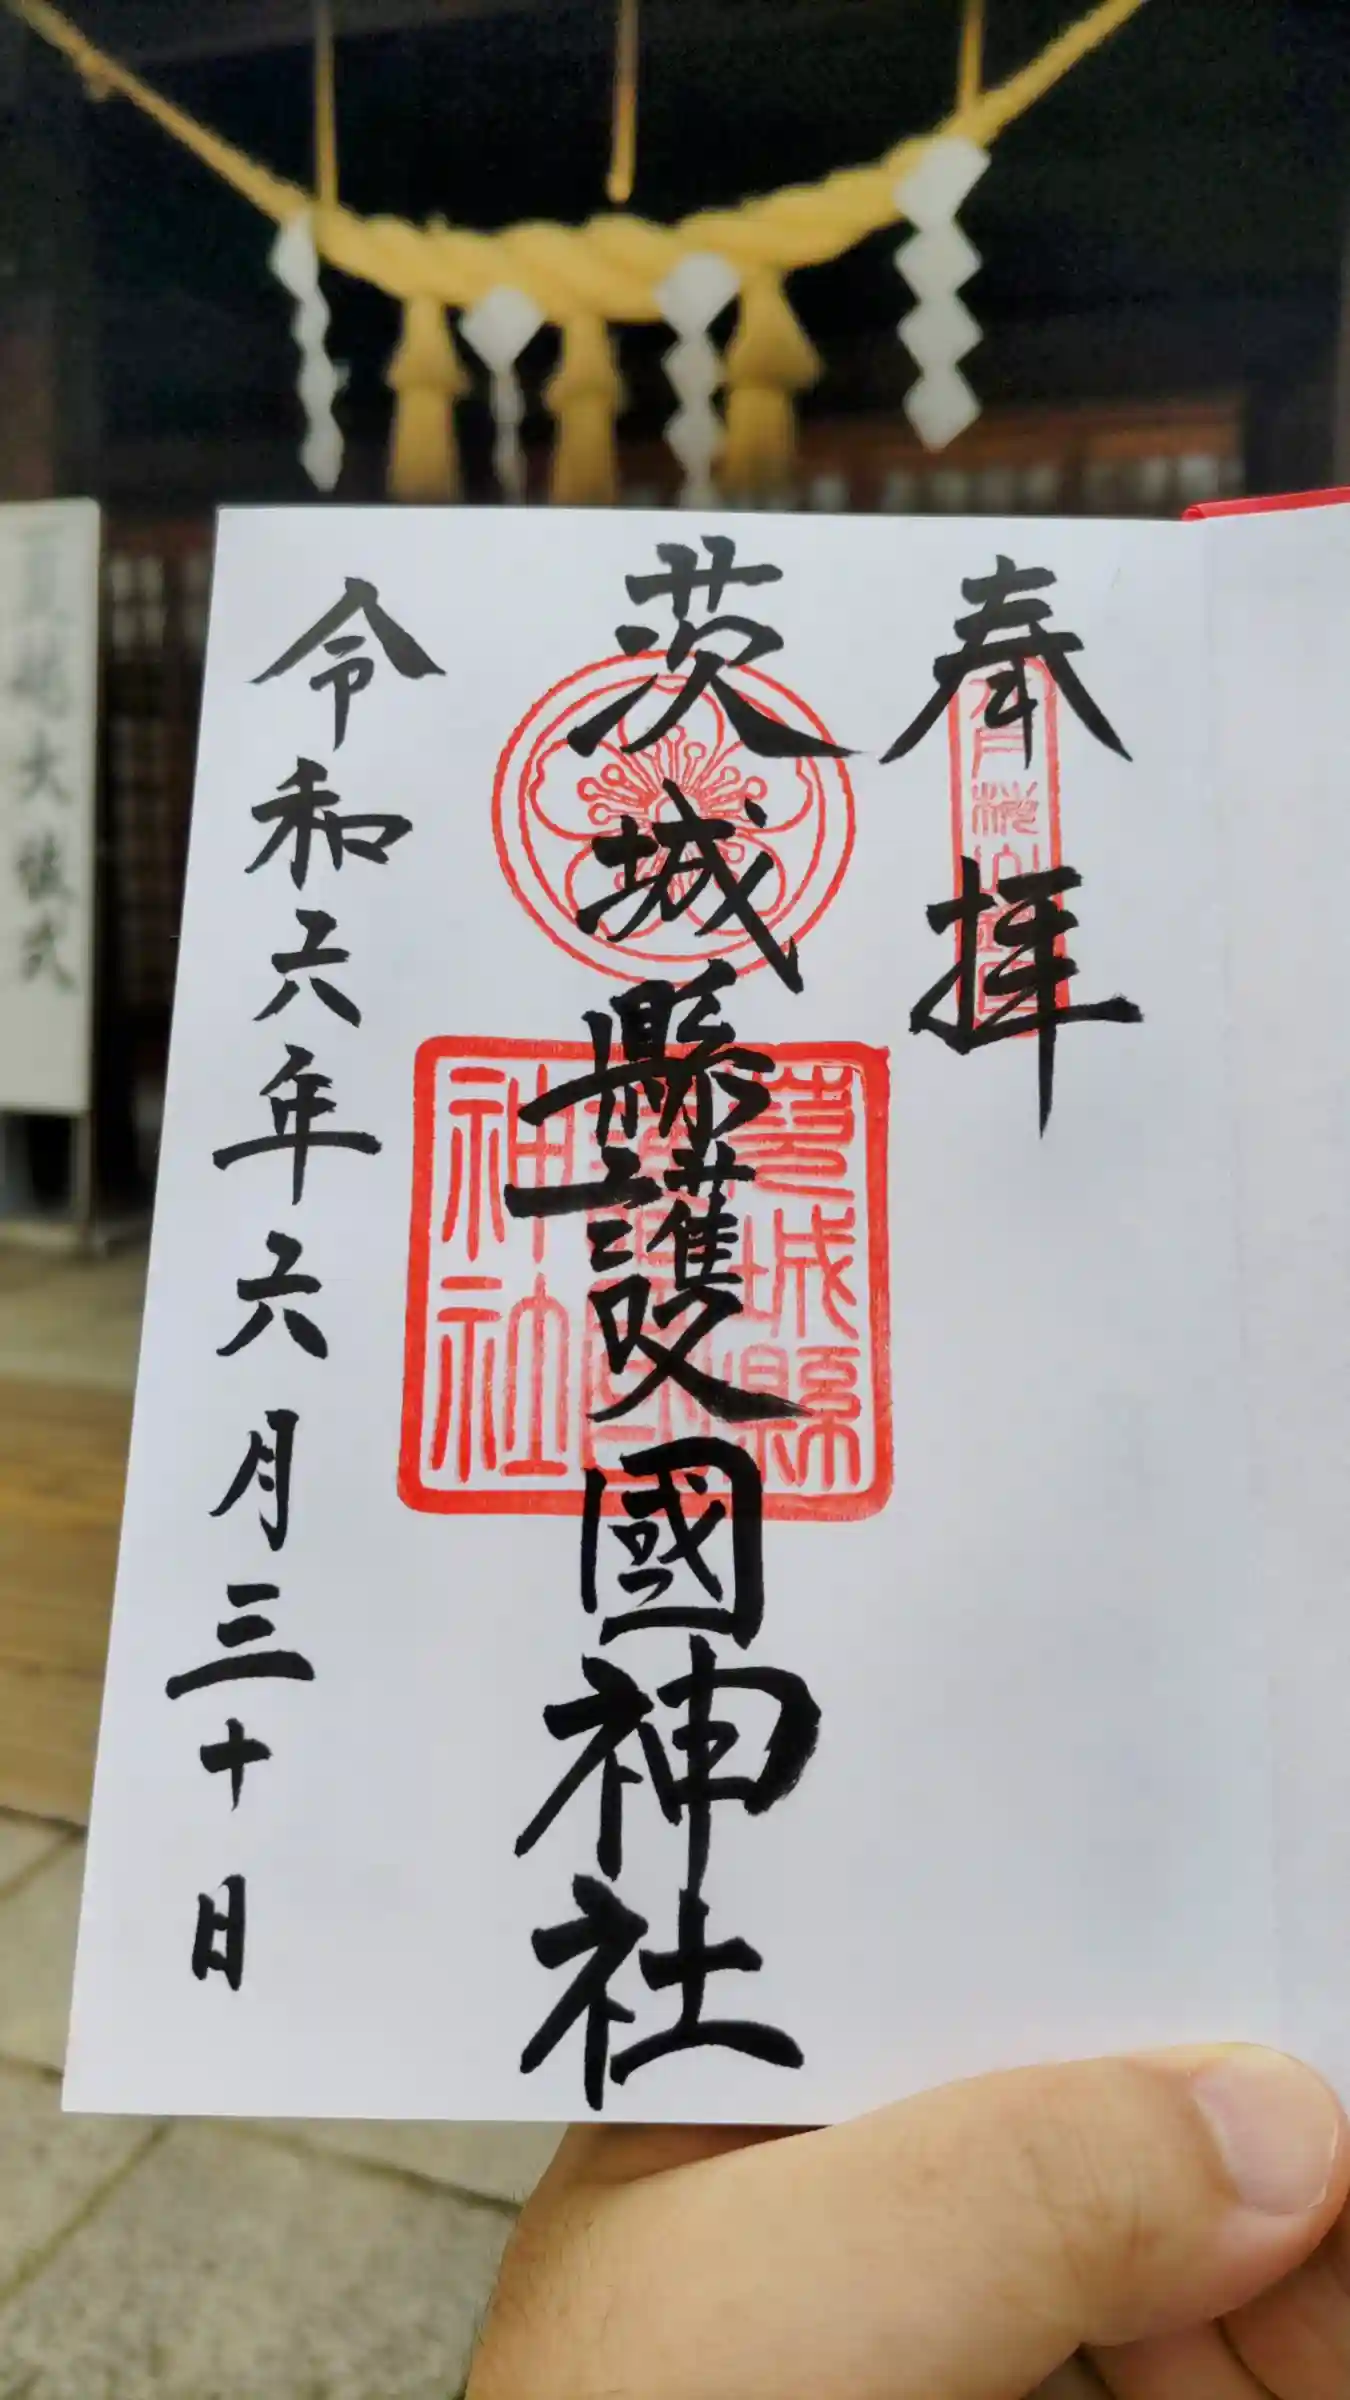 奉拝
茨城縣護國神社
令和六年六月三十日
茨城縣
護國
神社
大祓式